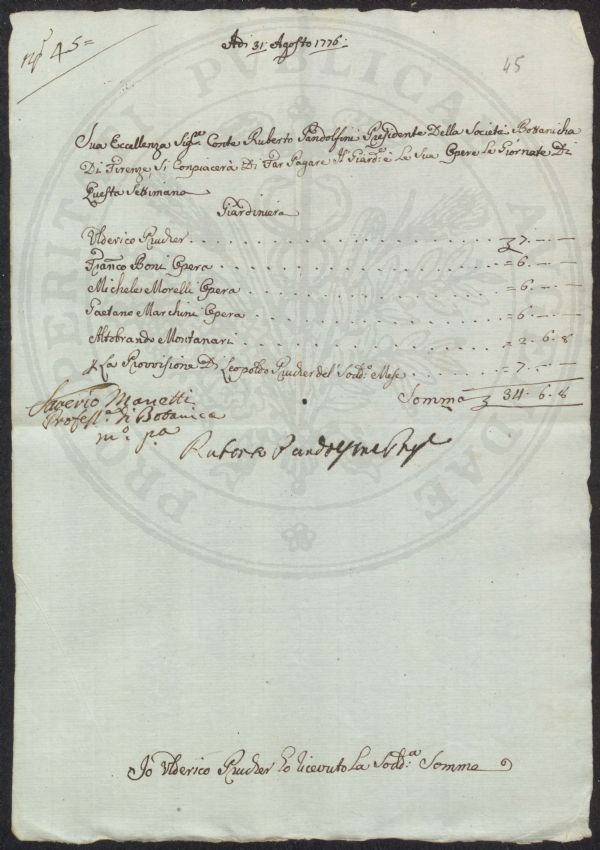 n.º 45=
Adi 31: Agosto 1776:
45
Sua Eccellenza Sig.re Conte Ruberto Pandolfini Presidente Della Società Bottanicha
Di Firenze, Si Conpiacerà Di Far Pagare Il Giard:e e La Sua Opere Le Giornate Di
Questa Settimana
Giardiniera
Ulderico Prucher . . . 7. — —
Franco Boni Opera . . . = 6. — —
Michele Morelli Opera . . . = 6. — —
Gaetano Marchini Opera . . . = 6. — —
Altobrando Montanari . . . = 2. 6. 8
& La Provvisione Di Leopoldo Prucher del Sodd:o Mese . . . 7. — —
Somma 34. 6. 8
Saverio Manetti
Profess.e di Botanica
m.o p.a
Ruberto Pandolfini
Io Ulderico Prucher ho ricevuto La Sodd:a Somma
PROSPERITATI PUBLICAE AUGENDAE